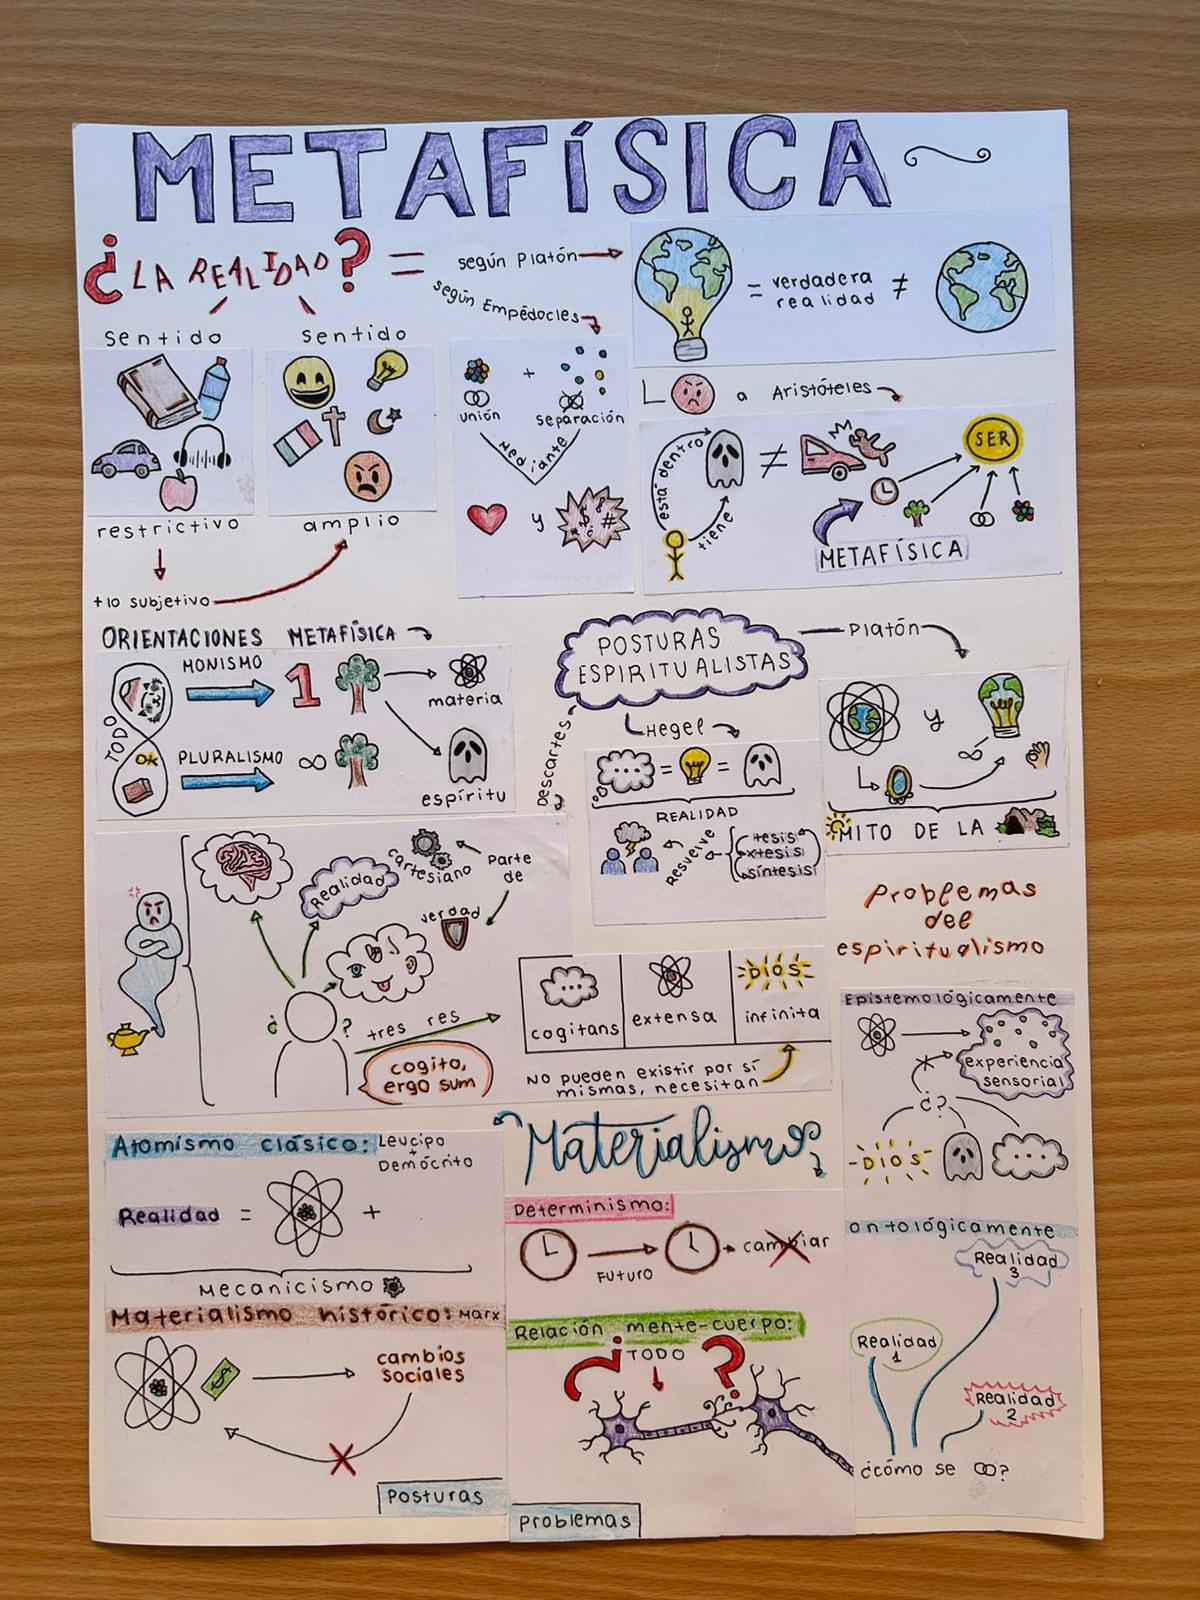 METAFÍSICA
¿LA REALIDAD? =
según Platón
según Empédocles
= verdadera
realidad ≠
sentido
restrictivo
sentido
amplio
+lo subjetivo
+
unión
separación
Mediante
y
a Aristóteles
está dentro
tiene
≠
SER
METAFÍSICA
ORIENTACIONES METAFÍSICA
TODO
OK
MONISMO
1
materia
PLURALISMO
∞
espíritu
POSTURAS
ESPIRITUALISTAS
Platón
y
∞
MITO DE LA
Hegel
... = =
REALIDAD
Resuelve
tesis
xtesis
síntesis
Descartes
Realidad
cartesiano
parte
de
verdad
¿ ?
tres res
cogito,
ergo sum
...
cogitans
extensa
DIOS
infinita
No pueden existir por sí
mismas, necesitan
Problemas
del
espiritualismo
Epistemológicamente
experiencia
sensorial
¿?
DIOS
...
ontológicamente
Realidad
3
Realidad
1
Realidad
2
¿cómo se ?
Materialismo
Atomismo clásico: Leucipo
+
Demócrito
Realidad = +
Mecanicismo
Materialismo histórico: Marx
$
cambios
sociales
Posturas
Determinismo:
Futuro
cambiar
Relación mente-cuerpo:
¿TODO?
Problemas